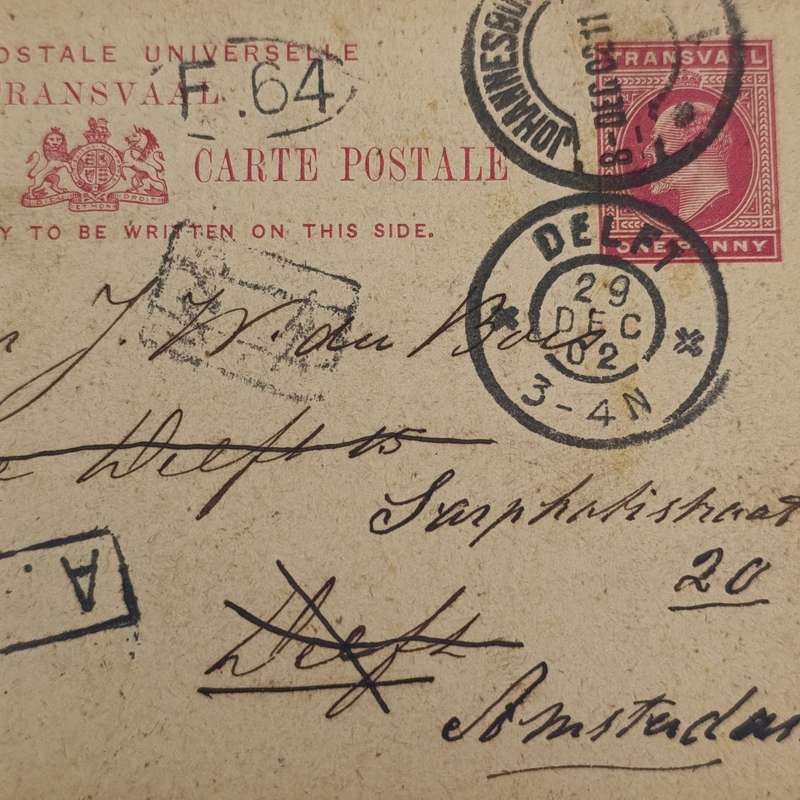 OSTALE UNIVERSELLE
F.64
RANSVAAL
CARTE POSTALE
Y TO BE WRITTEN ON THIS SIDE.
JOHANNESBU
8-DEC 02 11
TRANSVAAL
ONE PENNY
DELFT
29
DEC
02
3-4N
J. W. du Bois
Delft
Sarphatistraat
20
A.
Delft
Amsterdam